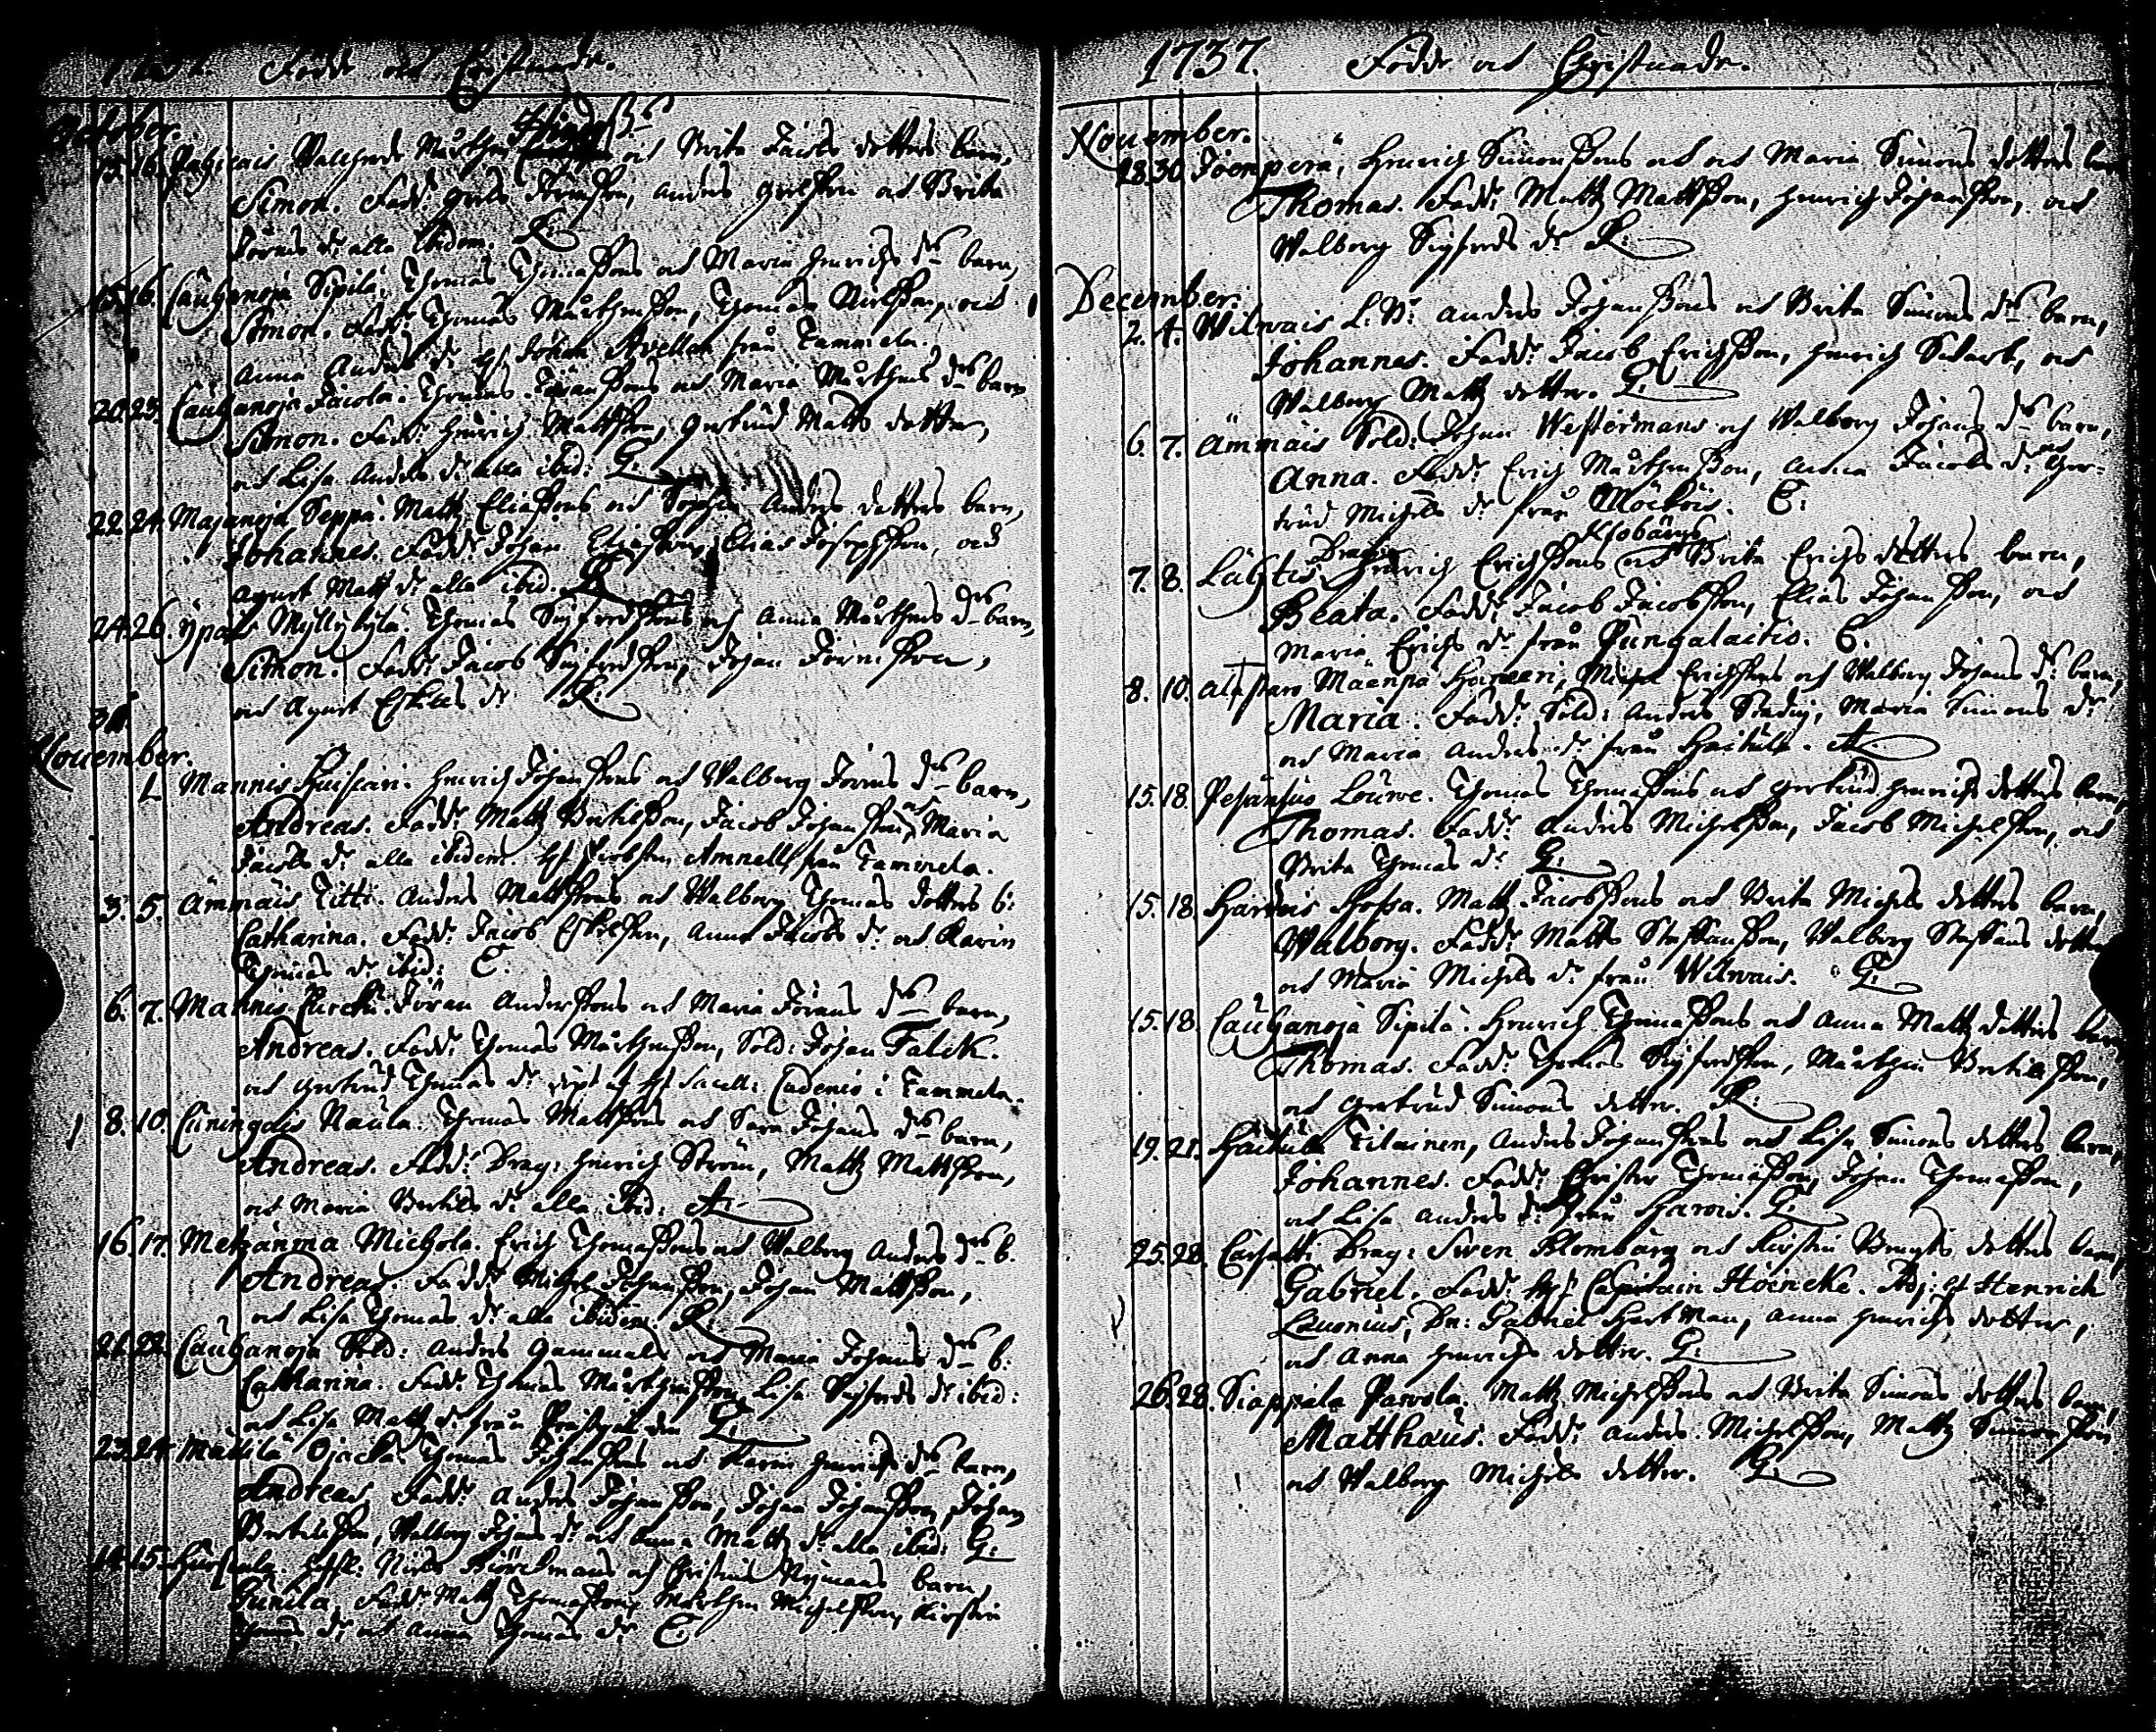 Födde och Christnade.
October.
15. 16. Walfreds Mårthen och Brita Jacobs dotters barn,
Simon. Fadd: Anders och Brita
Jörans dr alla ibidem.
15. 16. Cauhanoja Sipilä. Thomas Thomaßons och Maria Henrichs drs barn,
Simon. Fadd: Thomas Mårthenßon, Thomas och
Anna Anders dr Johan från Tammela.
20. 23. Cauhanoja Jacola. Thomas Jöranßons och Maria Mårthens drs barn
Simon. Fadd: Henrich Mattßon, Gertrud Matts dotter,
och Lisa Anders dr alla ibid: G.
22. 24. Majanoja Seppä. Matz Eliaßons och Sophia Anders dotters barn,
Johannes. Fadd: Johan Eliaßon, Elias Josephßon, och
Agnet Matz dr alla ibid. R.
24. 26. Ypäis Myllykylä. Thomas Sigfredßons och Anna Mårthens drs barn,
Simon. Fadd: Jacob Sigfredßon, Johan Jöranßon,
och Agnet Eskils dr R.
November.
1. Mannis Huiskari. Henrich Johanßons och Walborg Jörans drs barn,
Andreas. Fadd: Matz Bertilßon, Jacob Johanßon, och Maria
Jacobs dr alla ibidem. Amnell från Tammela.
3. 5. Ämmäis Titti. Anders Mattßons och Walborg Thomas dotters b:
Catharina. Fadd: Jacob Eskilßon, Anna Jacobs dr och Karin
Thomas dr ibid: C.
6. 7. Mannis Jöran Andersßons och Maria Jörans drs barn,
Andreas. Fadd: Thomas Mårthenßon, Sold: Johan Falck.
och Gertrud Thomas dr döpt af Hr Sacell: Cadenio i Tammela.
8. 10. Cuningalis Naula. Thomas Mattßons och Sara Johans drs barn,
Andreas. Fadd: Drag: Henrich Ström, Matz Mattßon,
och Maria Bertils dr alla ibid: A.
16. 17. Metzänma Michola. Erich Thomaßons och Walborg Anders drs b.
Andreas. Fadd: Michel Johanßon, Johan Mattßon,
och Lisa Thomas dr alla ibidem. R.
21. 22. Cauhanoja Sold: Anders Gammals och Maria Johans drs b:
Catharina. Fadd: Thomas Mårthenßon, Lisa Sigfreds dr ibid:
och Lisa Matz dr från G.
23. 24. Ojacka. Thomas Johanßons och Karin Henrichs drs barn,
Andreas. Fadd: Anders Johanßon, Johan Johanßon, Johan
Bertilsßon, Walborg Johans dr och Anna Matz dr alla ibid: G.
14. 15. Niels Björckmans och Christina Nymans barn,
Gunila. Fadd: Matz Thomaßon, Mårthen Michelßon, Kirstin
Thomas dr och Anna Thomas dr C.
1737. Födde och Christnade.
November.
28. 30. Joenperä, Henrich Simonßons och Maria Simons dotters barn
Thomas. Fadd: Matz Mattßon, Henrich Johanßon, och
Walborg Sigfreds dr R.
December.
2. 4. Wilwais Anders Johanßons och Brita Simons drs barn,
Johannes. Fadd: Jacob Erichßon, Henrich och
Walborg Matz dotter. G.
6. 7. Ämmäis Sold: Johan Westermans och Walborg Johans drs barn,
Anna. Fadd: Erich Mårthenßon, Anna Jacobs dr och Ger-
trud Michels dr från C:
7. 8. Lahtis, Henrich Erichßons och Brita Erichs dotters barn,
Beata. Fadd: Jacob Jacobßon, Elias Johanßon, och
Maria Erichs dr från Pungalaitio. C.
8. 10. Alastaro Mäenpä Michel Erichßons och Walborg Johans drs barn,
Maria. Fadd: Sold: Anders Maria Simons dr
och Maria Anders dr från Haitula. A.
15. 18. Pesänsuo Louwe. Thomas Thomaßons och Gertrud Henrichs dotters barn,
Thomas. Fadd: Anders Michelßon, Jacob Michelßon, och
Brita Thomas dr G.
15. 18. Matz Jacobßons och Brita Michels dotters barn,
Walborg. Fadd: Matts Staffanßon, Walborg Staffans dotter
och Maria Michels dr från Wilwais. G.
15. 18. Cauhanoja Sipilä. Henrich Thomaßons och Anna Matz dotters barn
Thomas. Fadd: Thomas Sigfredßon, Mårthen Bertilsßon,
och Gertrud Simons dotter. R.
19. 21. Haitula Tilainen, Anders Johanßons och Lisa Simons dotters barn,
Johannes. Fadd: Christer Thomaßon, Johan Thomaßon,
och Lisa Anders dr från Harois. G.
25. 28. Drag: Swen Blombärg och Kirstin Bengts dotters barn,
Gabriel. Fadd: Capitain Höencke. Adj: Hr Henrich
Lauonius, Gabriel Hartman, Anna Henrichs dotter,
och Anna Henrichs dotter. G.
26. 28. Siappala Parvola. Matz Michelßons och Brita Simons dotters barn,
Matthäus. Fadd: Anders Michelßon, Matz Simonßon
och Walborg Michels dotter. G.